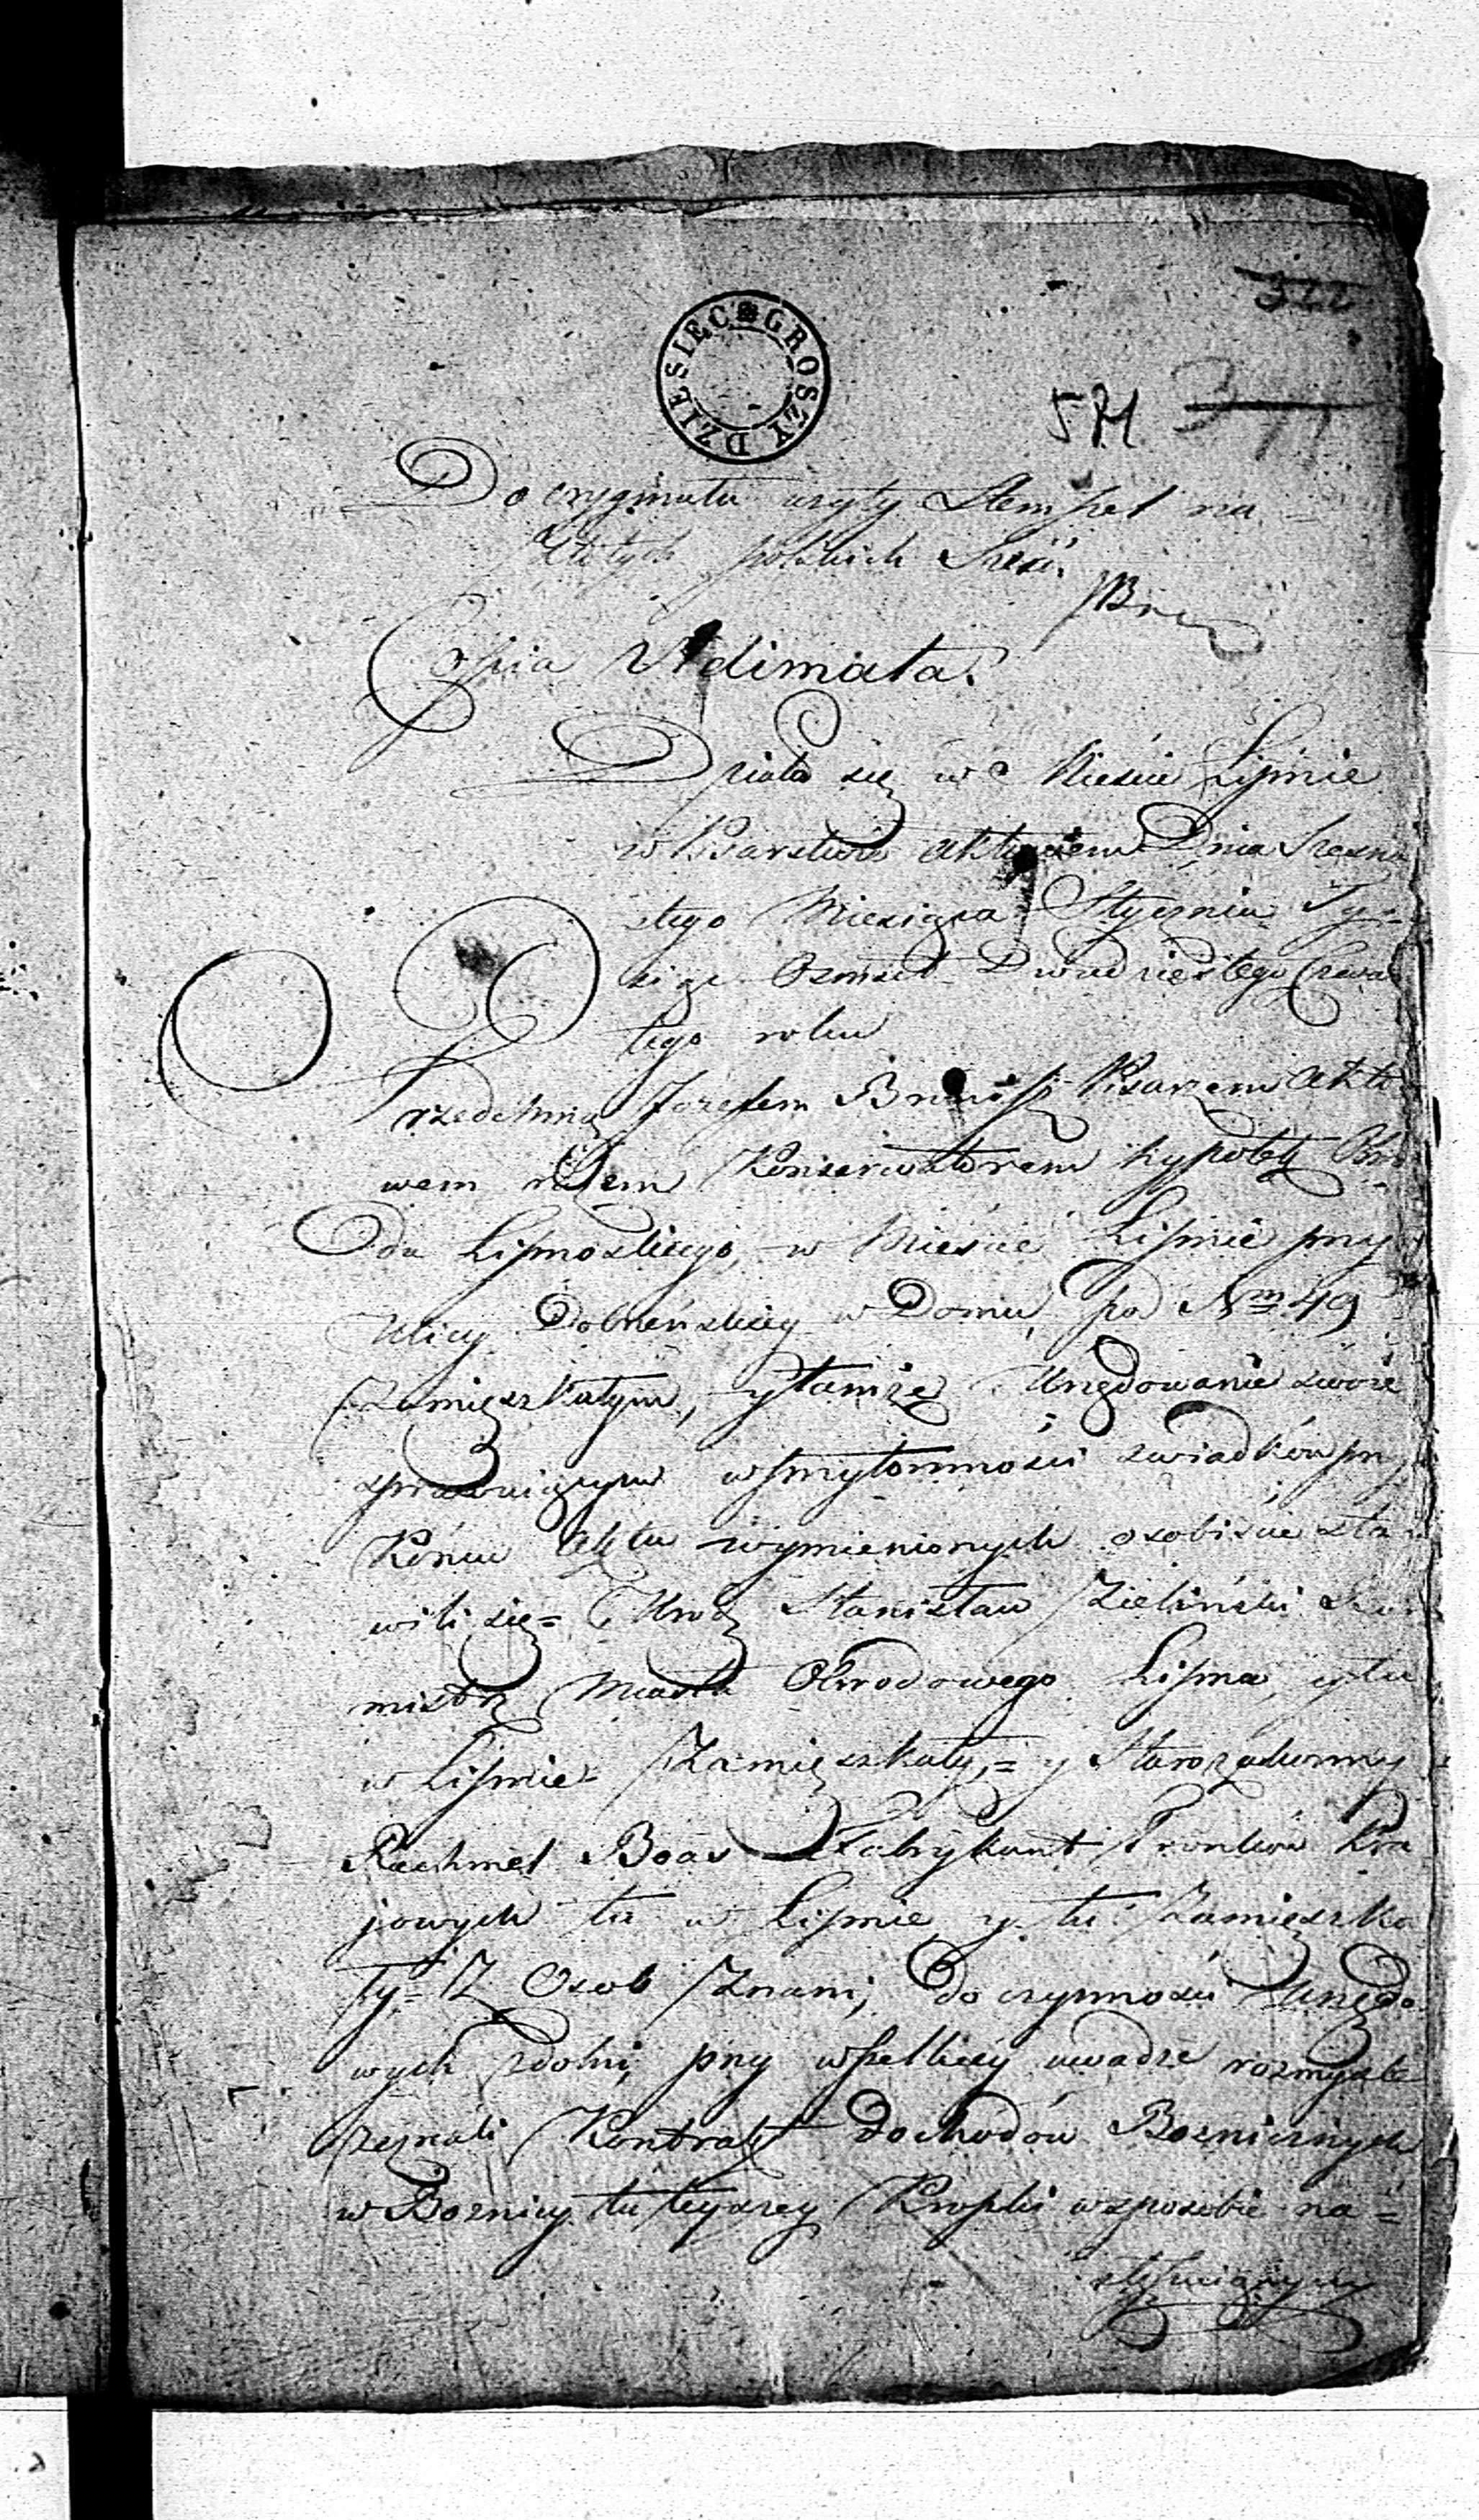 DZIESIĘC GROSZY
Do oryginału użyty Stempel na
Złotych polskich Sześć.
Copia Vidimata.
Działo się w Mieście Lipnie
w Biórze Aktowem Dnia Szesna
stego Miesiąca Stycznia Ty-
siąc Osmset Dwudziestego Czwar
tego roku
Przedemną Józefem Pisarzem Akto
wem razem Konserwatorem hypotek Obwo
du Lipnoskiego, w Mieście Lipnie przy
Ulicy Dobrzeńskiey w Domu pod Nrm 49
Zamięszkałym, y tamże Urzędowanie swoie
sprawuiącym w przytomności swiadków przy
Końcu Aktu wymienionych osobiście sta
wili się= Urod. Stanisław Zieliński Bur
mistrz Miasta Obwodowego Lipna, y tu
w Lipnie Zamięszkały,= y Starozakonny
Rachmel Boas Fabrykant Trunków Kra
jowych tu w Lipnie y tu Zamięszka
ły= Z Osob Znani, do czynności Urzędo
wych zdolni, przy wszelkiey uwadze rozmyśle
zeznali Kontrakt dochodów Boznicznych
w Boznicy tuteyszey Kropki w sposobie na=
stępuiącym